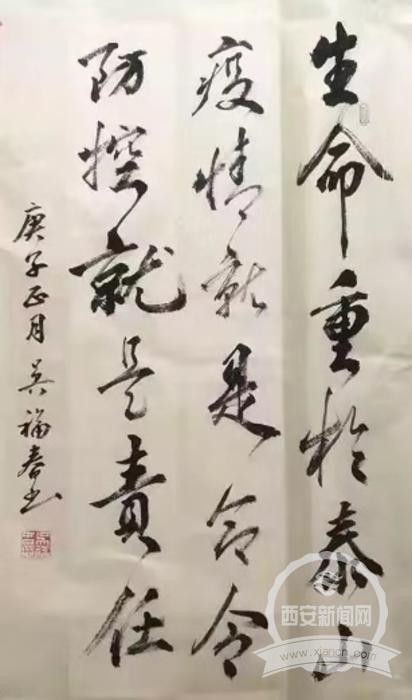 生命重於泰山
疫情就是命令
防控就是责任
庚子正月吴福春书
西安新闻网
www.xiancn.com